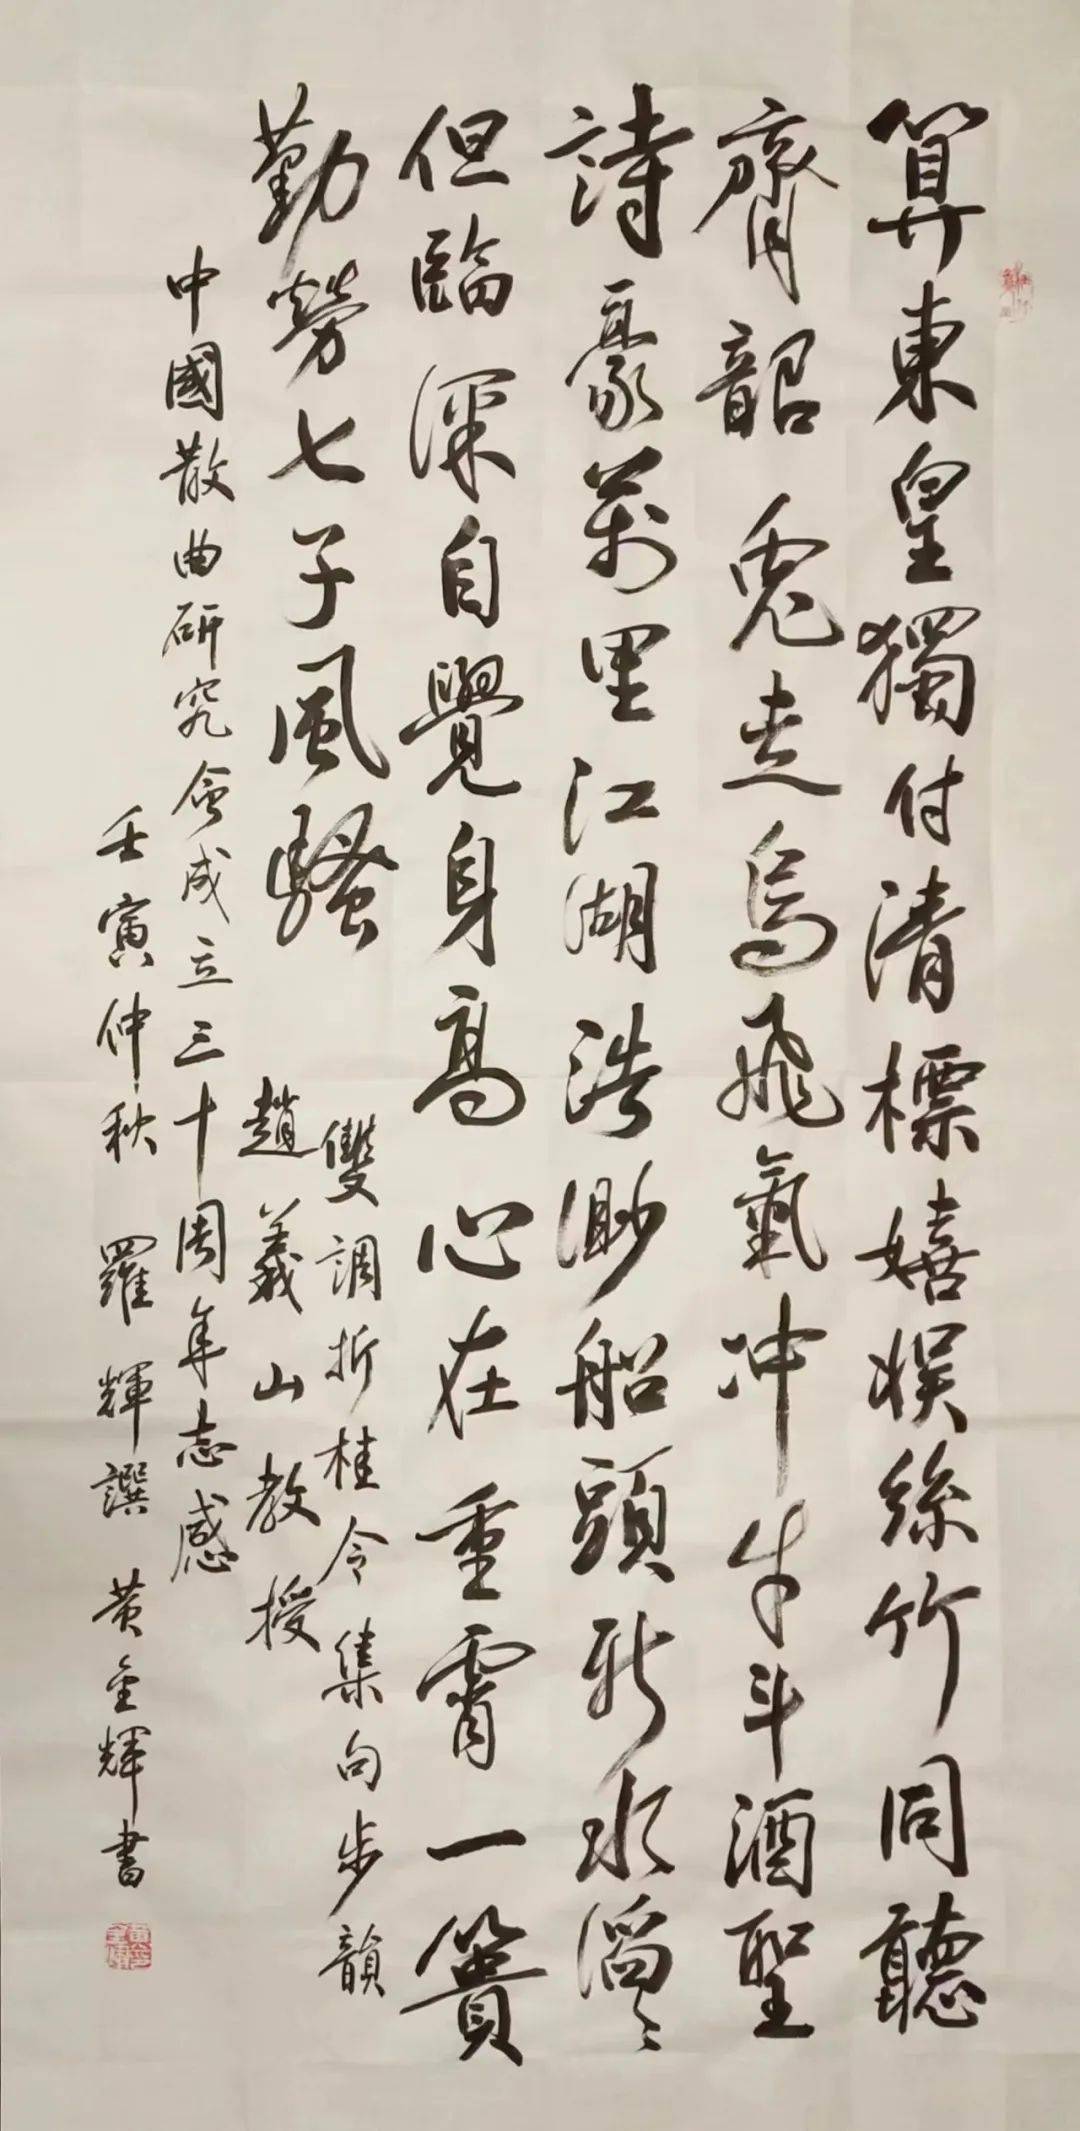 算東皇獨付清標嬉娱絲竹同聽
齊韶兎走烏飛氣冲牛斗酒聖
詩豪萬里江湖浩渺船頭新水滔〻
但臨深自覺身高心在重霄一簣
勤勞七子風騷
雙調折桂令集句步韻
趙義山教授
中國散曲研究会成立三十周年志感
壬寅仲秋 羅輝譔 黄金輝書